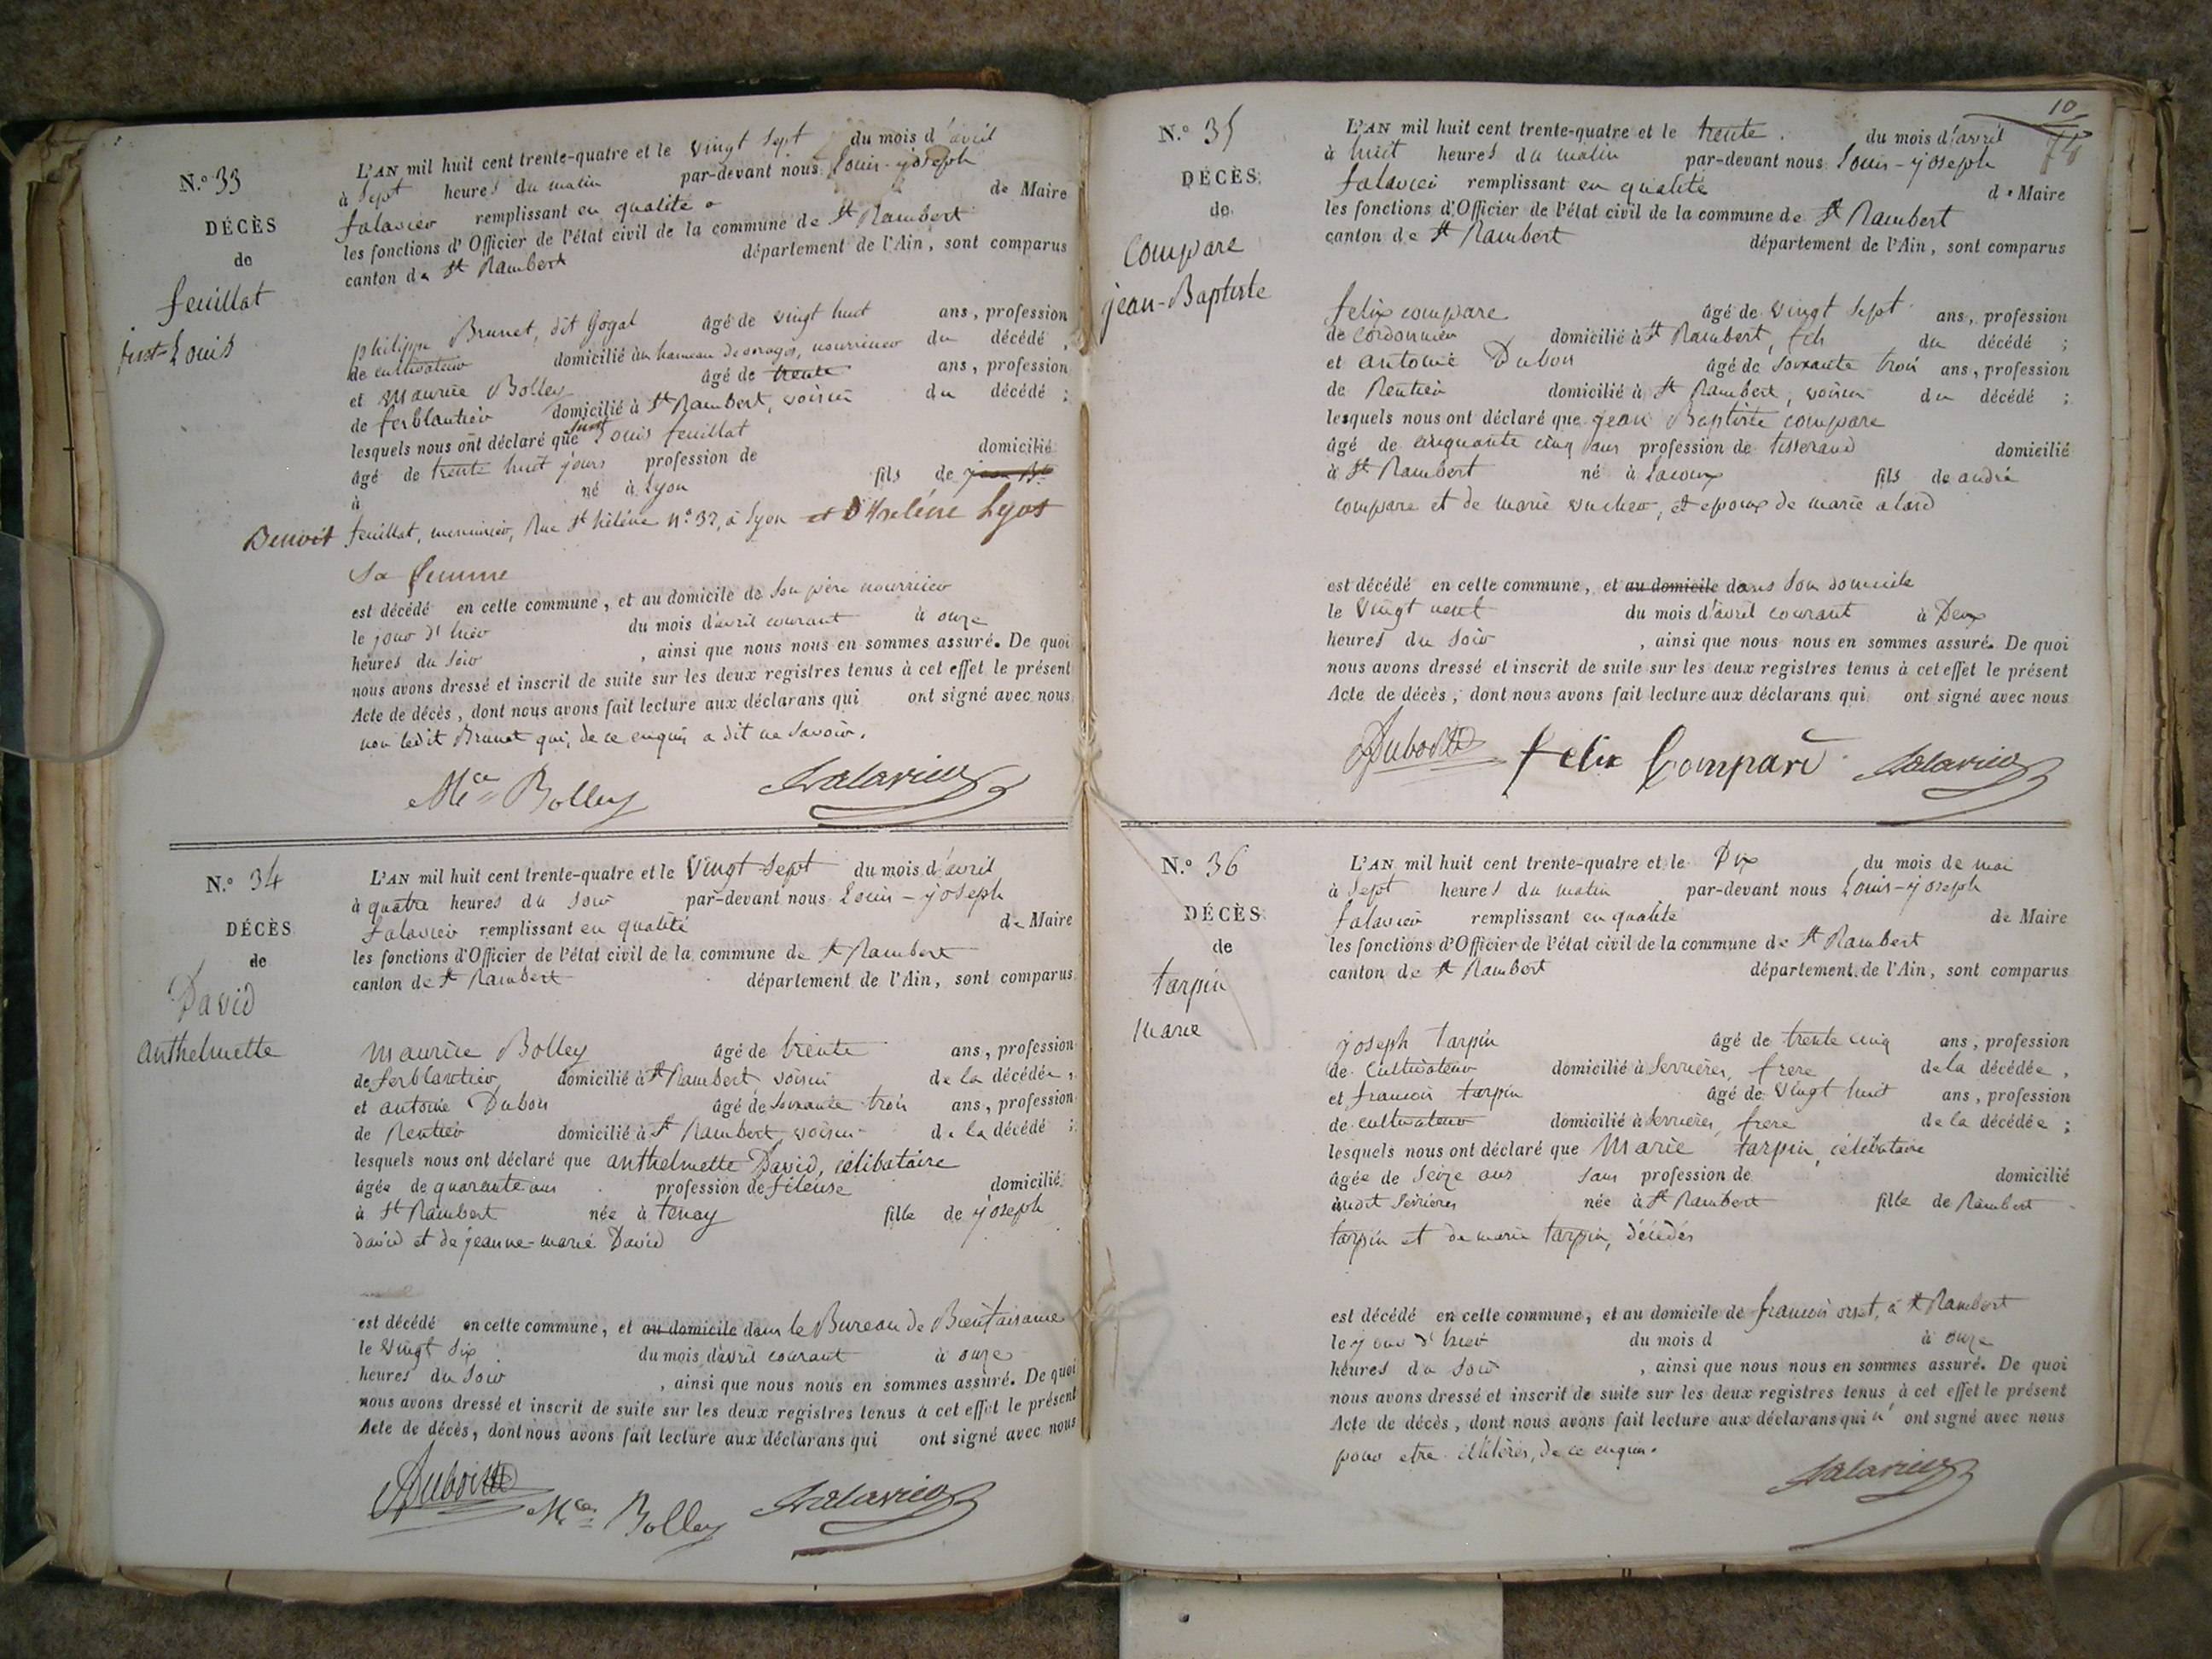 N.° 33
DÉCÈS
de
feuillat
just-Louis
L'AN mil huit cent trente-quatre et le vingt sept du mois d'avril
à sept heures du matin par-devant nous Louis-joseph
falavier remplissant en qualité de Maire
les fonctions d'Officier de l'état civil de la commune de St Rambert
canton de St Rambert département de l'Ain, sont comparus
philippe Brunet, dit Gogat âgé de vingt huit ans, profession
de cultivateur domicilié au hameau nourricier du décédé,
et Maurice Bolley âgé de trente ans, profession
de ferblantier domicilié à St Rambert, voisin du décédé;
lesquels nous ont déclaré que just Louis feuillat
âgé de trente huit jours profession de domicilié
à né à Lyon fils de
Benoit feuillat, menuisier, Rue St hélène n.° 32, à Lyon et d'helène Lyot
Sa femme
est décédé en cette commune, et au domicile de son père nourricier
le jour d'hier du mois d'avril courant à onze
heures du soir, ainsi que nous nous en sommes assuré. De quoi
nous avons dressé et inscrit de suite sur les deux registres tenus à cet effet le présent
Acte de décès, dont nous avons fait lecture aux déclarans qui ont signé avec nous
non ledit Brunet qui, de ce enquis a dit ne savoir.
Mce Bolley falavier
N.° 34
DÉCÈS
de
David
anthelmette
L'AN mil huit cent trente-quatre et le vingt sept du mois d'avril
à quatre heures du soir par-devant nous Louis-joseph
falavier remplissant en qualité de Maire
les fonctions d'Officier de l'état civil de la commune de St Rambert
canton de St Rambert département de l'Ain, sont comparus
Maurice Bolley âgé de trente ans, profession
de ferblantier domicilié à St Rambert voisin de la décédée,
et antoine Dubois âgé de soixante trois ans, profession
de Rentier domicilié à St Rambert, voisin de la décédé;
lesquels nous ont déclaré que anthelmette David, célibataire
âgée de quarante ans profession de fileuse domicilié
à St Rambert née à tenay fille de joseph
David et de jeanne-marie David
est décédé en cette commune, et au domicile dans le Bureau de Bienfaisance
le vingt six du mois d'avril courant à onze
heures du soir, ainsi que nous nous en sommes assuré. De quoi
nous avons dressé et inscrit de suite sur les deux registres tenus à cet effet le présent
Acte de décès, dont nous avons fait lecture aux déclarans qui ont signé avec nous
Dubois Mce Bolley falavier
10
N.° 35
DÉCÈS
de
Compare
jean-Baptiste
L'AN mil huit cent trente-quatre et le trente du mois d'avril
à huit heures du matin par-devant nous Louis-joseph
falavier remplissant en qualité de Maire
les fonctions d'Officier de l'état civil de la commune de St Rambert
canton de St Rambert département de l'Ain, sont comparus
felix compare âgé de vingt sept ans, profession
de cordonnier domicilié à St Rambert, fils du décédé;
et antoine Dubois âgé de soixante trois ans, profession
de Rentier domicilié à St Rambert, voisin du décédé;
lesquels nous ont déclaré que jean Baptiste compare
âgé de cinquante cinq ans profession de tisserand domicilié
à St Rambert né à Lacoux fils de andré
compare et de marie et epoux de marie alard
est décédé en cette commune, et au domicile dans son domicile
le vingt neuf du mois d'avril courant à Deux
heures du soir, ainsi que nous nous en sommes assuré. De quoi
nous avons dressé et inscrit de suite sur les deux registres tenus à cet effet le présent
Acte de décès, dont nous avons fait lecture aux déclarans qui ont signé avec nous
Dubois felix Compare falavier
N.° 36
DÉCÈS
de
tarpin
Marie
L'AN mil huit cent trente-quatre et le Dix du mois de mai
à sept heures du matin par-devant nous Louis-joseph
falavier remplissant en qualité de Maire
les fonctions d'Officier de l'état civil de la commune de St Rambert
canton de St Rambert département de l'Ain, sont comparus
joseph tarpin âgé de trente cinq ans, profession
de cultivateur domicilié à Serrières, frere de la décédée,
et francois tarpin âgé de vingt huit ans, profession
de cultivateur domicilié à Serrières, frere de la décédée;
lesquels nous ont déclaré que Marie tarpin, célibataire
âgée de seize ans sans profession de domicilié
audit Serrieres née à St Rambert fille de Rambert
tarpin et de marie tarpin, décédés
est décédé en cette commune, et au domicile de francois orset, à St Rambert
le jour d'hier du mois d à onze
heures du soir, ainsi que nous nous en sommes assuré. De quoi
nous avons dressé et inscrit de suite sur les deux registres tenus à cet effet le présent
Acte de décès, dont nous avons fait lecture aux déclarans qui n' ont signé avec nous
pour etre illitérés, de ce enquis.
falavier